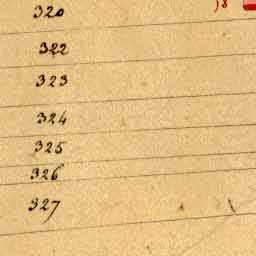 320
322
323
324
325
326
327